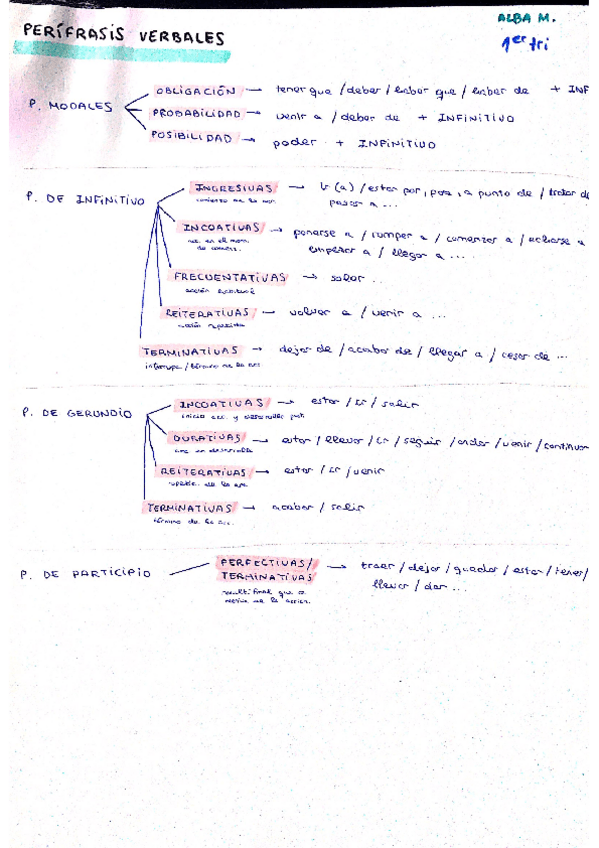 ALBA M.
1er tri
PERÍFRASIS VERBALES
P. MODALES
OBLIGACIÓN → tener que / deber / haber que / haber de + INF
PROBABILIDAD → venir a / deber de + INFINITIVO
POSIBILIDAD → poder + INFINITIVO
P. DE INFINITIVO
INGRESIVAS → Ir (a) / estar por, para, a punto de / tratar de
pasar a ...
INCOATIVAS → ponerse a / romper a / comenzar a / echarse a
empezar a / llegar a ...
FRECUENTATIVAS → soler ...
acción habitual
REITERATIVAS → volver a / venir a ...
acción repetida
TERMINATIVAS → dejar de / acabar de / llegar a / cesar de ...
P. DE GERUNDIO
INCOATIVAS → estar / ir / salir
DURATIVAS → estar / llevar / ir / seguir / andar / venir / continuar
acc. en desarrollo
REITERATIVAS → estar / ir / venir
TERMINATIVAS → acabar / salir
término de la acc.
P. DE PARTICIPIO
PERFECTIVAS /
TERMINATIVAS → traer / dejar / quedar / estar / tener /
llevar / dar ...